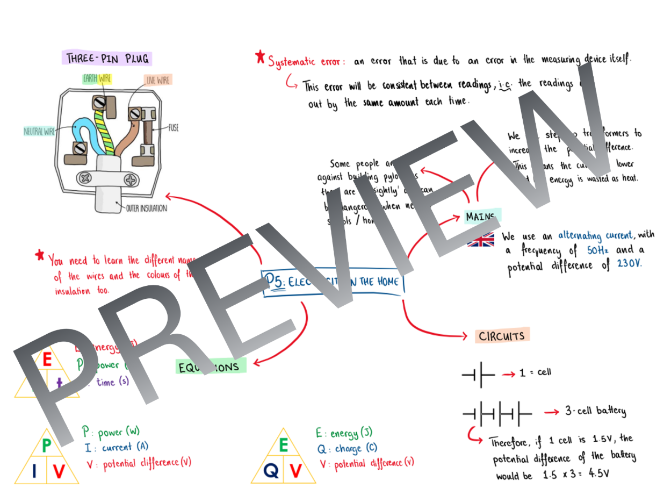 THREE-PIN PLUG
EARTH WIRE
LIVE WIRE
NEUTRAL WIRE
FUSE
OUTER INSULATION
Systematic error: an error that is due to an error in the measuring device itself.
This error will be consistent between readings, i.e. the readings
out by the same amount each time.
Some people
against
when
We step transformers to
the difference.
This the lower
energy is wasted as heat.
MAINS
We use an alternating current, with
a frequency of 50Hz and a
potential difference of 230V.
You need to learn the different
of the wires and the colours of
insulation too.
P5: IN THE HOME
PREVIEW
EQUATIONS
E
t
energy
P power
time (s)
P
I V
P: power (W)
I: current (A)
V: potential difference (V)
E
Q V
E: energy (J)
Q: charge (C)
V: potential difference (V)
CIRCUITS
1 = cell
3-cell battery
Therefore, if 1 cell is 1.5V, the
potential difference of the battery
would be 1.5 x 3 = 4.5V